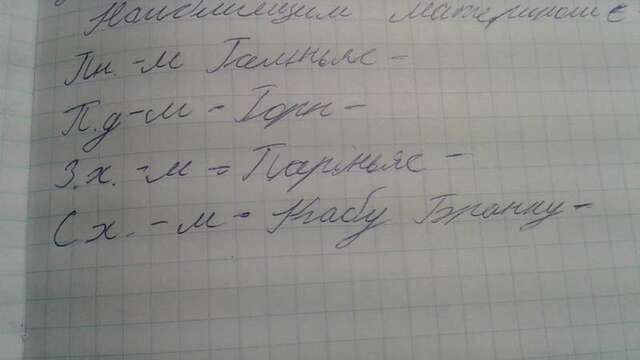 Найближчим материком є
Пн. - м Гальньяс -
П.д - м - Горн -
З.х. - м = Паріньяс -
Сх. - м - Кабу Бранку -